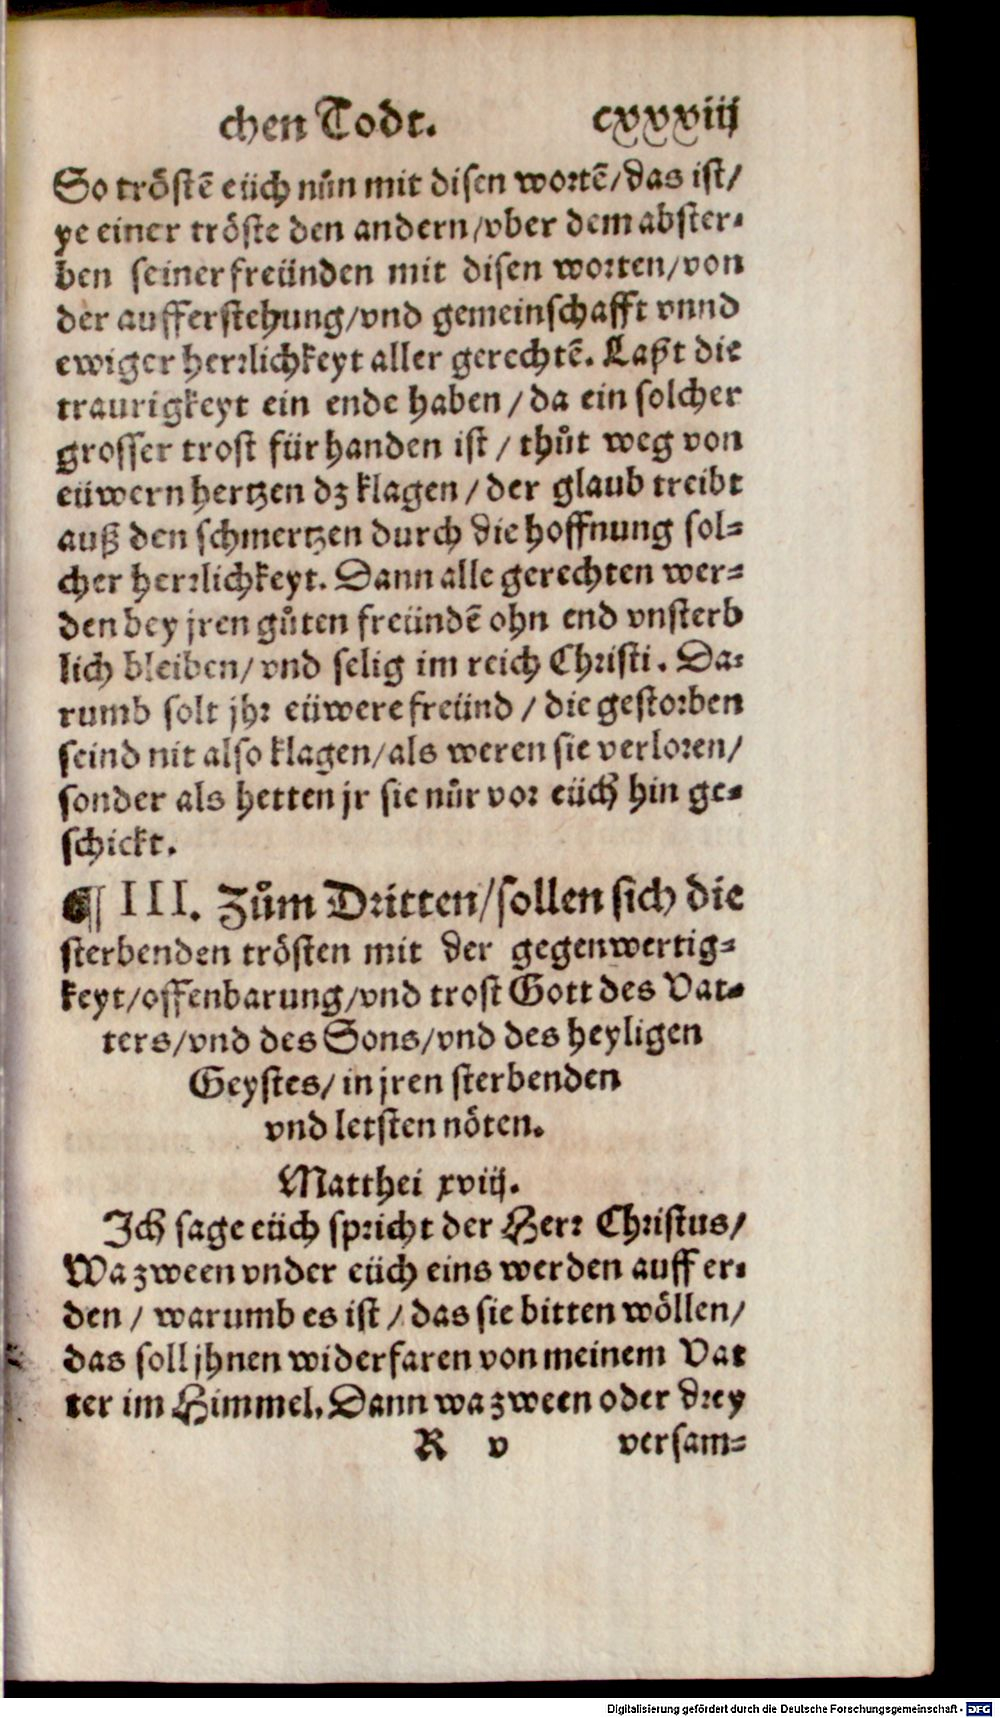 chen Todt. cxxxiij
So tröstē eüch nůn mit disen wortē/das ist/
ye einer tröste den andern/vber dem abster-
ben seiner freünden mit disen worten/von
der aufferstehung/vnd gemeinschafft vnnd
ewiger herrlichkeyt aller gerechtē. Laßt die
traurigkeyt ein ende haben / da ein solcher
grosser trost für handen ist / thůt weg von
eüwern hertzen dz klagen / der glaub treibt
auß den schmertzen durch die hoffnung sol-
cher herrlichkeyt. Dann alle gerechten wer-
den bey jren gůten freündē ohn end vnsterb
lich bleiben/ vnd selig im reich Christi. Da-
rumb solt jhr eüwere freünd / die gestorben
seind nit also klagen/als weren sie verloren/
sonder als hetten jr sie nůr vor eüch hin ge-
schickt.
¶ III. Zům Dritten/sollen sich die
sterbenden trösten mit der gegenwertig-
keyt/offenbarung/vnd trost Gott des Vat-
ters/vnd des Sons/vnd des heyligen
Geystes/ in jren sterbenden
vnd letsten nöten.
Matthei xviij.
Ich sage eüch spricht der Herr Christus/
Wa zween vnder eüch eins werden auff er-
den / warumb es ist / das sie bitten wöllen/
das soll jhnen widerfaren von meinem Vat
ter im Himmel. Dann wa zween oder drey
R v versam-
Digitalisierung gefördert durch die Deutsche Forschungsgemeinschaft - DFG